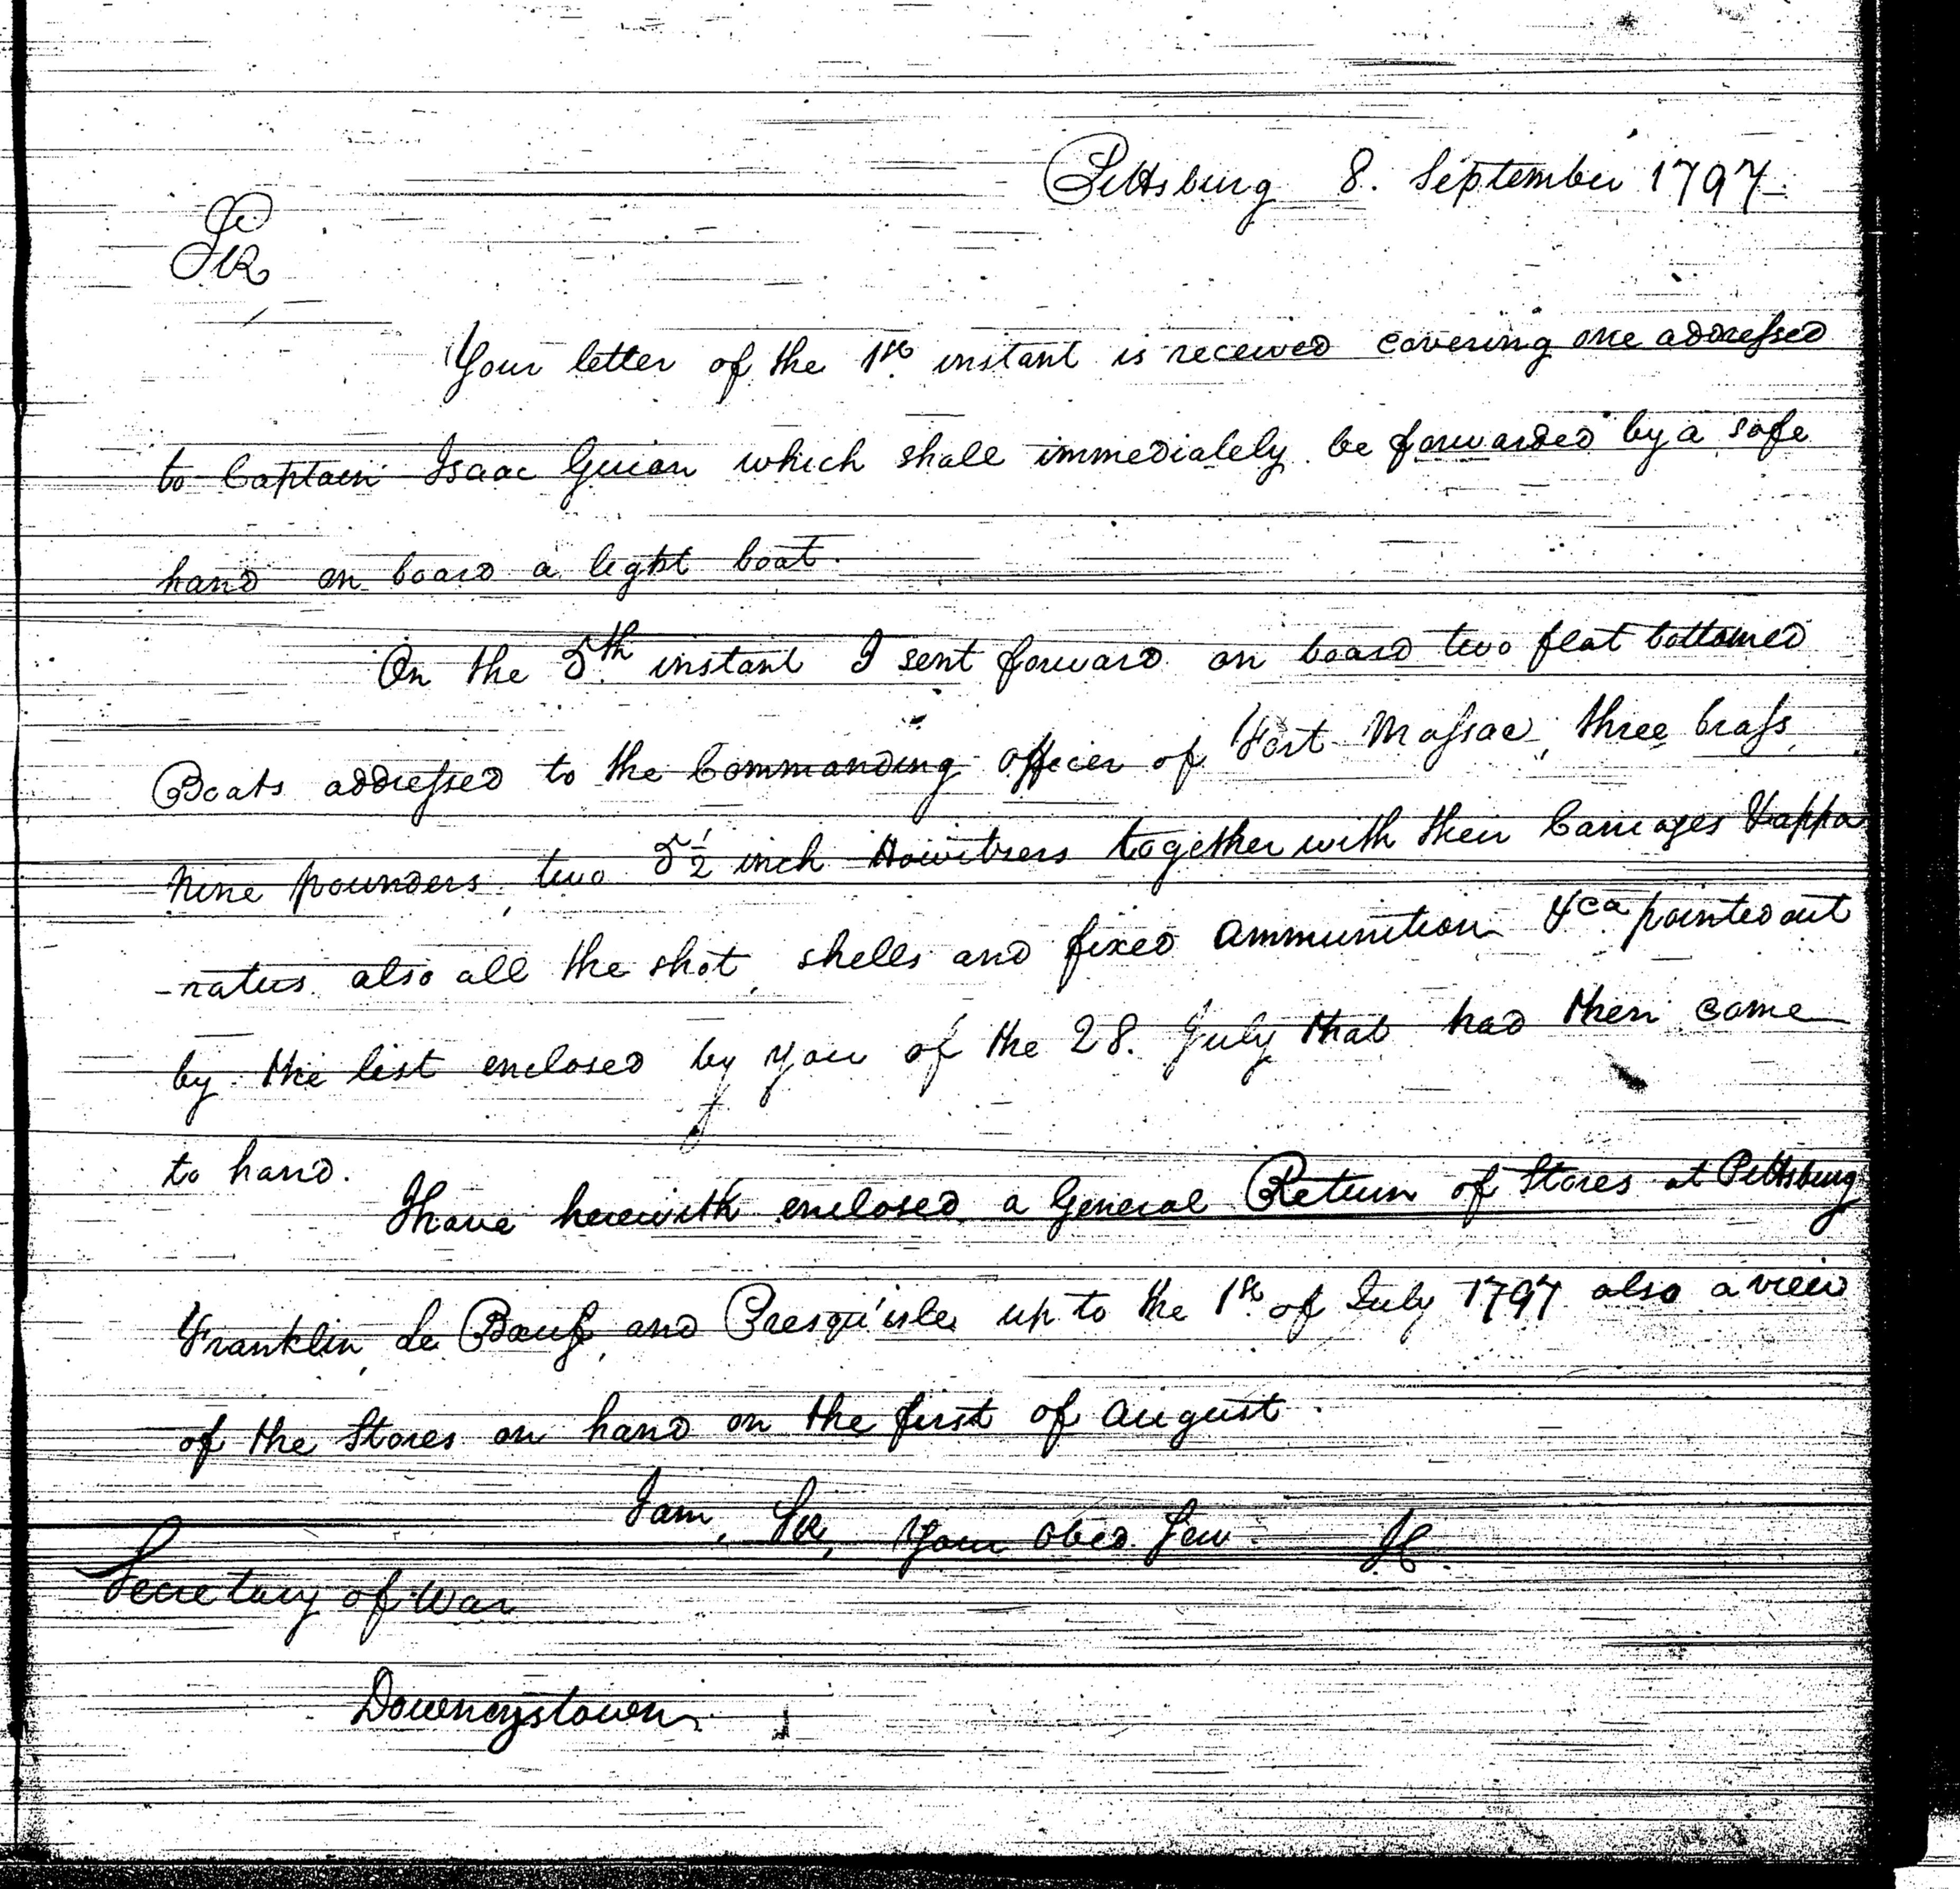 Pittsburg 8. September 1797.
Sir
Your letter of the 1st instant is received covering one addressed
to Captain Isaac Guion which shall immediately be forwarded by a safe
hand on board a light boat.
On the 5th instant I sent forward on board two flat bottomed
Boats addressed to the Commanding Officer of Fort Massac, three brass
nine pounders, two 5½ inch Howitzers together with their Carriages & appa
-ratus also all the shot, shells and fixed ammunition &ca pointed out
by the list enclosed by you of the 28. July that had then come
to hand.
I have herewith enclosed a General Return of Stores at Pittsburg
Franklin, le Bœuf, and Presqu'isle, up to the 1st of July 1797 also a view
of the Stores on hand on the first of August.
I am, Sir, Your Obed. Serv.
Secretary of War
Downeystown